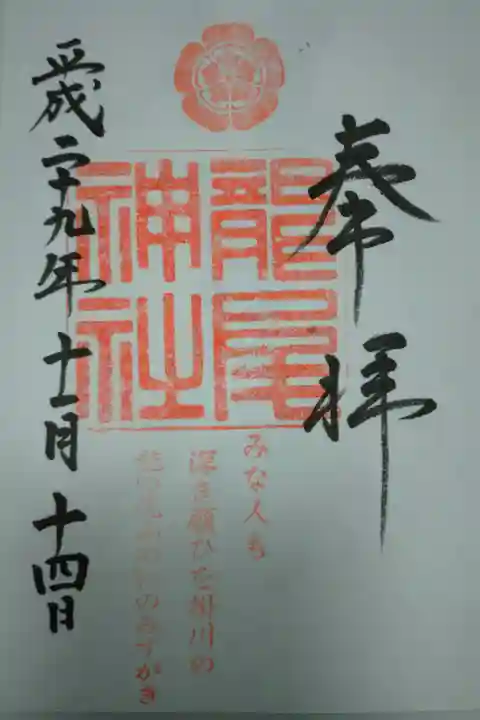 奉拝
龍尾
神社
みな人も
深き願ひを掛川の
のみずがき
平成二十九年十一月十四日